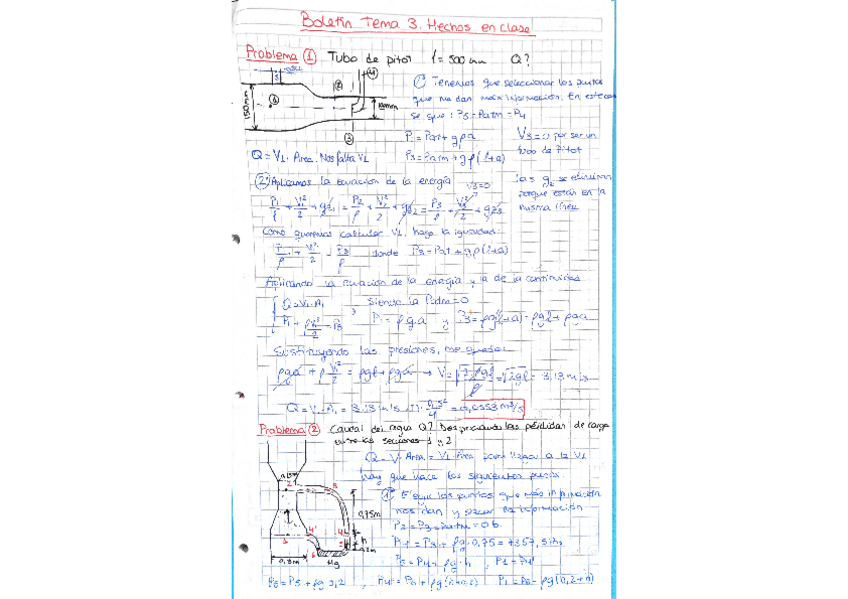 Boletín Tema 3. Hechos en clase
Problema 1 Tubo de pitot l = 500 mm Q?
1º Tenemos que seleccionar los puntos
que me dan más información. En este caso
se que: P5 = Patm = P4
150mm
P1 = Pat + gρa V3 = 0 por ser un
tubo de Pitot
Q = V1 · Area. Nos falta V1 P3 = Patm + gρ(l+a)
2º Aplicamos la ecuación de la energía V3=0 las g z se eliminan
porque están en la
P1/ρ + V1²/2 + gz1 = P2/ρ + V2²/2 + gz2 = P3/ρ + V3²/2 + gz3 misma línea
Como queremos calcular V1, hago la igualdad:
P1/ρ + V1²/2 = P3/ρ donde P3 = Pat + gρ(l+a)
Aplicando la ecuación de la energía y la de la continuidad
Q = V1·A1 Siendo la Patm = 0
P1 + ρV1²/2 = P3 P1 = ρ g a y P3 = ρg(l+a) = ρgl + ρga
Sustituyendo las presiones, me queda:
ρga + ρV1²/2 = ρgl + ρga → V = √(2ρgl/ρ) = √2gl = 3,13 m/s
Q = V1·A1 = 3.13 m/s · π · 0,15²/4 = 0,0553 m³/s
Problema 2 Caudal del agua Q? Despreciando las pérdidas de carga
entre las secciones 1 y 2
Q = V · Area = V1 · Area para llegar a la V1
hay que hacer los siguientes pasos
1º Elegir los puntos que más información
nos dan y sacar la información
0,75m
P2 = P3 = Patm = 0 b.
P4 = P3 + ρg·0,75 = 7357,5
P1 = P4'
Hg
P6 = P5 + ρg 0,2 P1 = P6 - ρg(0,2+h)